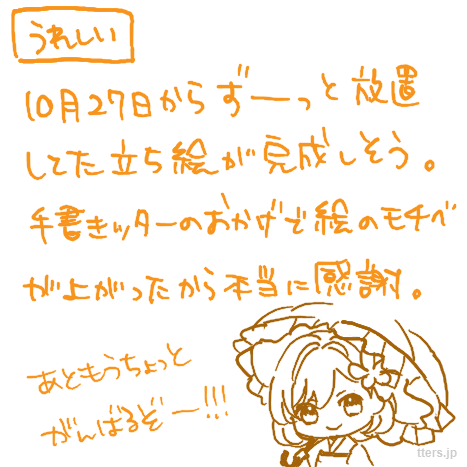 うれしい
10月27日からずーっと放置
してた立ち絵が完成しそう。
手書きッターのおかげで絵のモチベ
が上がったから本当に感謝。
あともうちょっと
がんばるぞー!!!
tters.jp